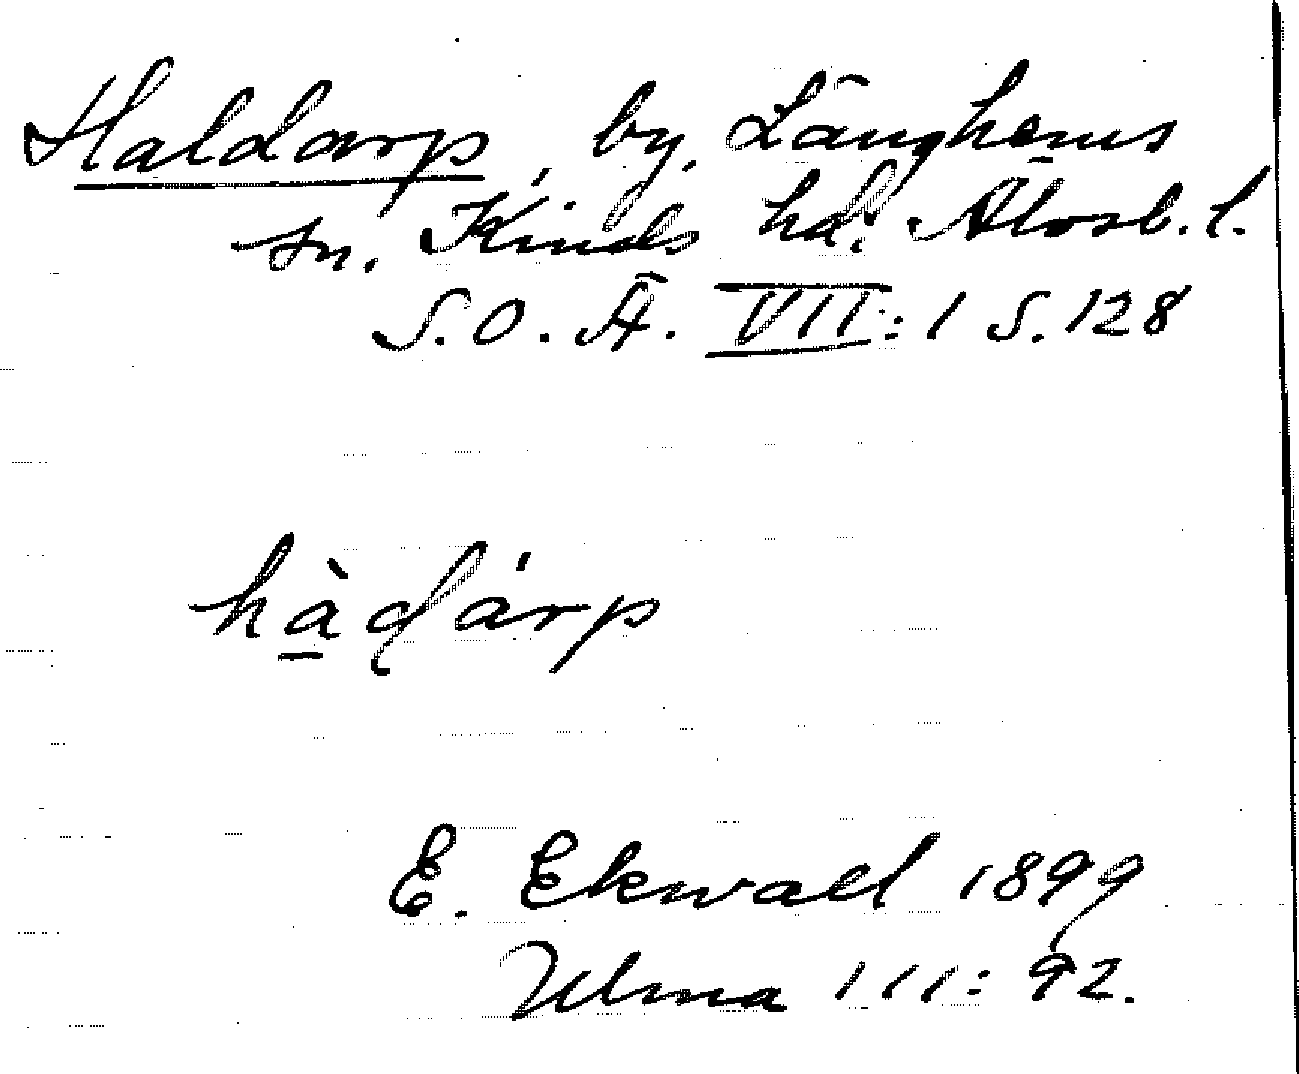 Haldarp, by, Länghems
sn. Kinds hd. Älvsb. l.
S. O. Ä. VII: 1 S. 128
hàdárp
E. Ekwall 1899
Ulma 111: 92.